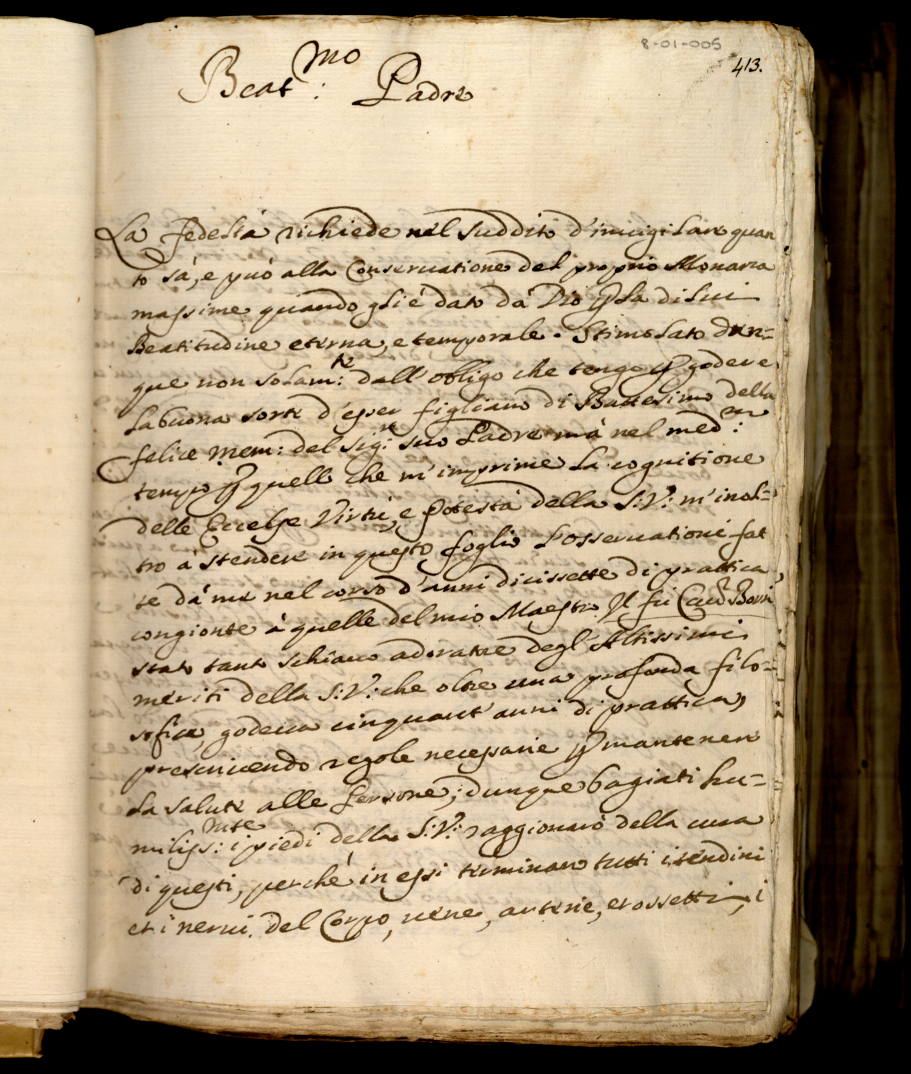 8-01-005
413.
Beat.mo Padre
La fedeltà richiede nel suddito d'inuigilare quan
to sà, e può alla Conseruatione del proprio Monarca
massime quando gli è dato dà Dio p la di lui
Beatitudine eterna, e temporale. Stimolato dun=
que non solam:te dall'obligo che tengo p godere
la buona sorte d'esser figliano di Battesimo della
felice mem: del sig:re suo Padre mà nel med:mo
tempo p quello che m'imprime la cognitione
delle Eccelse Virtù, e Potestà della S:V: m'inol=
tro à stendere in questo foglio l'osseruationi fat
te dà me nel corso d'anni dicissette di prattica,
congionte à quelle del mio Maestro Il fù Cau.r Borri
stato tanto schiauo adoratore degl'Altissimi
meriti della S:V: che oltre una profonda filo=
sofia, godeua cinquant'anni di prattica,
prescriuendo regole necessarie p mantenere
la salute alle Persone; dunque bagiati hu=
miliss:mte i piedi della S:V: raggionarò della cura
di questi, perché in essi terminano tutti i tendini
et i nerui del Corpo, uene, arterie, et ossetti, i